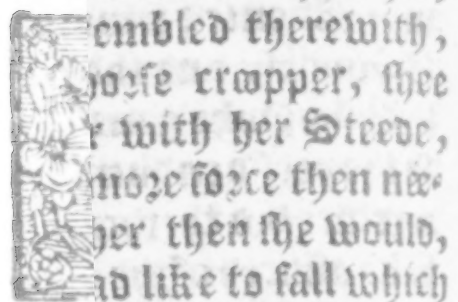 embled therewith,
horse crooper, shee
with her Steede,
more force then nee-
her then she would,
ad like to fall which